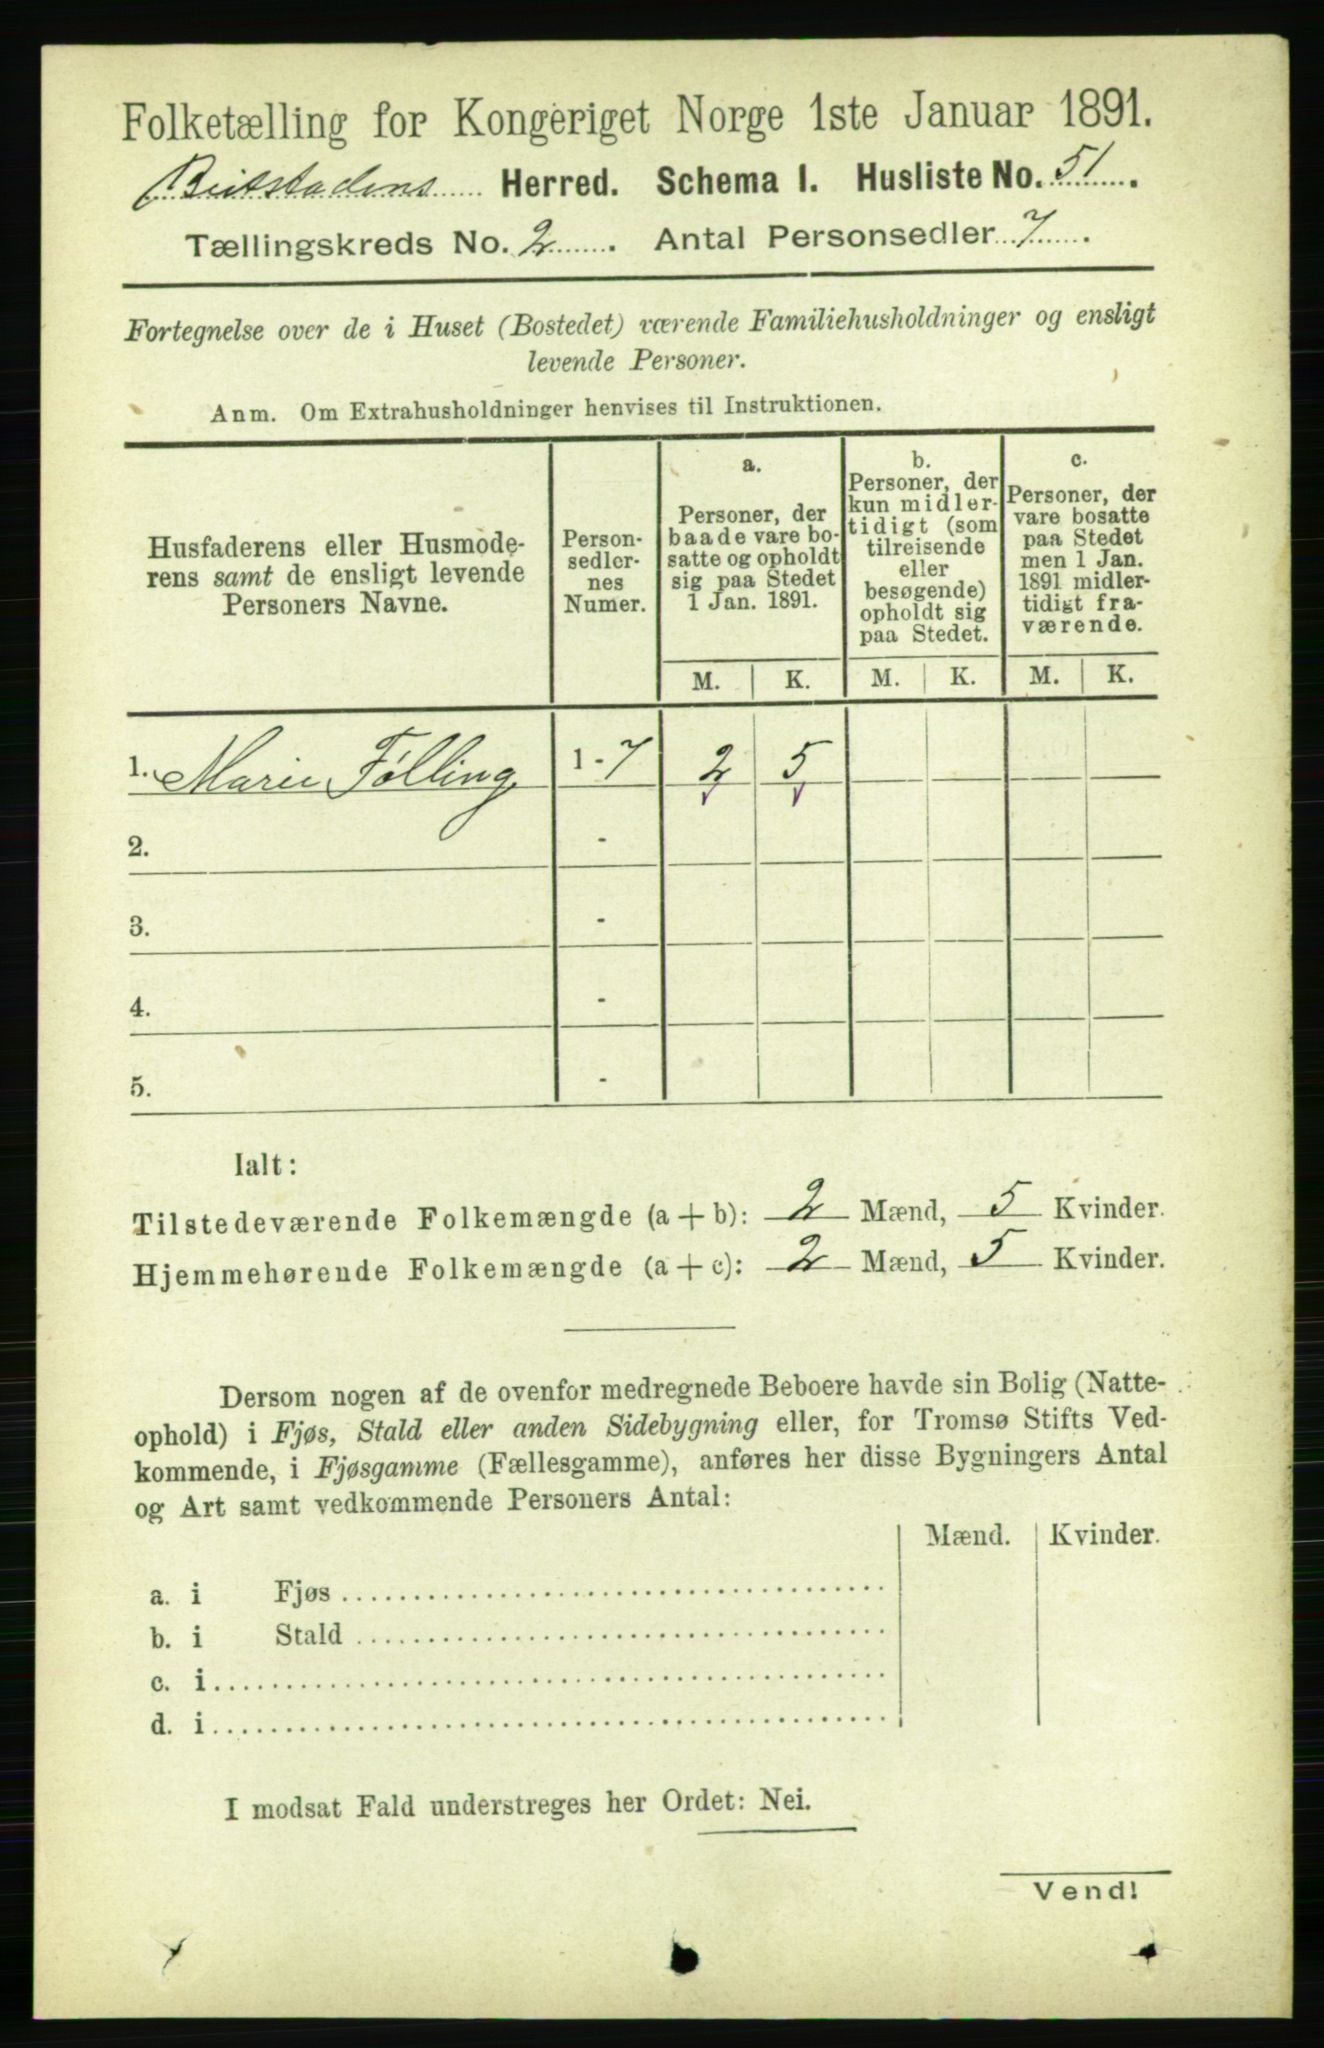 Folketælling for Kongeriget Norge 1ste Januar 1891.
Beitstadens Herred. Schema I. Husliste No. 51.
Tællingskreds No. 2. Antal Personsedler 7.
Fortegnelse over de i Huset (Bostedet) værende Familiehusholdninger og ensligt
levende Personer.
Anm. Om Extrahusholdninger henvises til Instruktionen.
Husfaderens eller Husmode-
rens samt de ensligt levende
Personers Navne.
Person-
sedler-
nes
Numer.
a.
Personer, der
baade vare bo-
satte og opholdt
sig paa Stedet
1 Jan. 1891.
b.
Personer, der
kun midler-
tidigt (som
tilreisende
eller
besøgende)
opholdt sig
paa Stedet.
c.
Personer, der
vare bosatte
paa Stedet
men 1 Jan.
1891 midler-
tidigt fra-
værende.
M. K. M. K. M. K.
1. Marie Følling 1-7 2 5
2. -
3. -
4. -
5. -
Ialt:
Tilstedeværende Folkemængde (a + b): 2 Mænd, 5 Kvinder.
Hjemmehørende Folkemængde (a + c): 2 Mænd, 5 Kvinder.
Dersom nogen af de ovenfor medregnede Beboere havde sin Bolig (Natte-
ophold) i Fjøs, Stald eller anden Sidebygning eller, for Tromsø Stifts Ved-
kommende, i Fjøsgamme (Fællesgamme), anføres her disse Bygningers Antal
og Art samt vedkommende Personers Antal:
Mænd. Kvinder.
a. i Fjøs
b. i Stald
c. i
d. i
I modsat Fald understreges her Ordet: Nei.
Vend!